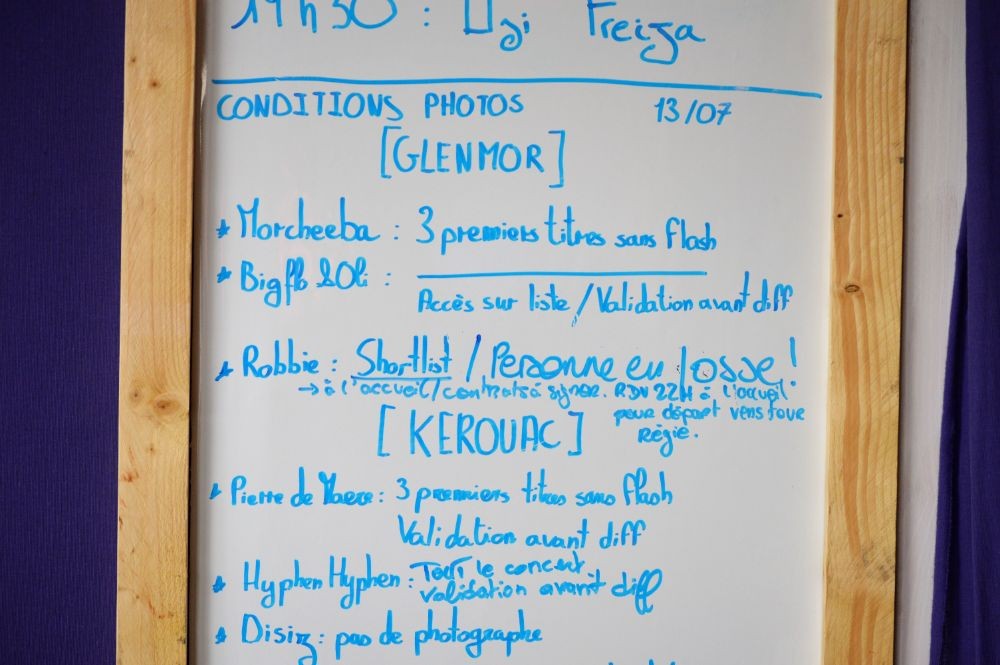 19h30 : Uzi Freija
CONDITIONS PHOTOS 13/07
[GLENMOR]
* Morcheeba : 3 premiers titres sans flash
* Bigflo & Oli :
Accès sur liste / Validation avant diff
* Robbie : Shortlist / Personne en fosse !
→ à l'accueil / contrats à signer. RDV 22H à l'accueil
pour départ vers
Régie.
[KEROUAC]
* Pierre de Maere : 3 premiers titres sans flash
Validation avant diff
* HyphenHyphen : Tout le concert.
validation avant diff
* Disiz : pas de photographe